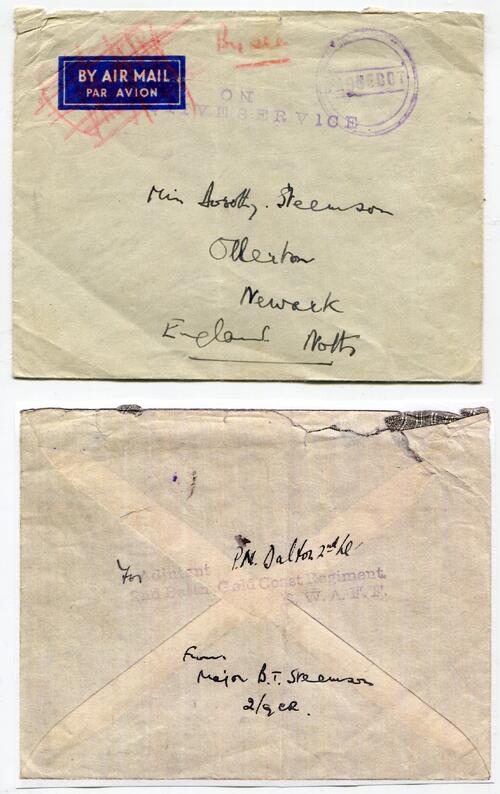 By sea
BY AIR MAIL
PAR AVION
ON
SERVICE
Miss Dorothy. Steemson
Ollerton
Newark
England Notts
P.N. Dalton 2nd Lt
For Adjutant
2nd Battn Gold Coast Regiment
W. A. F. F.
From
Major B.T. Steemson
2/GCR.